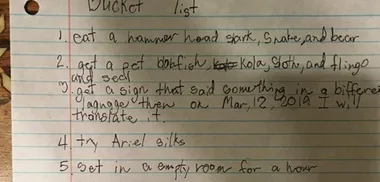 Bucket list
1. eat a hammer head shark, Snake, and bear
2. get a pet blobfish, kola, Sloth, and flingo
and seal
3. get a sign that said something in a differe
lagnage then on Mar, 12, 2019 I will
translate it.
4. try Ariel silks
5 set in a empty room for a hour